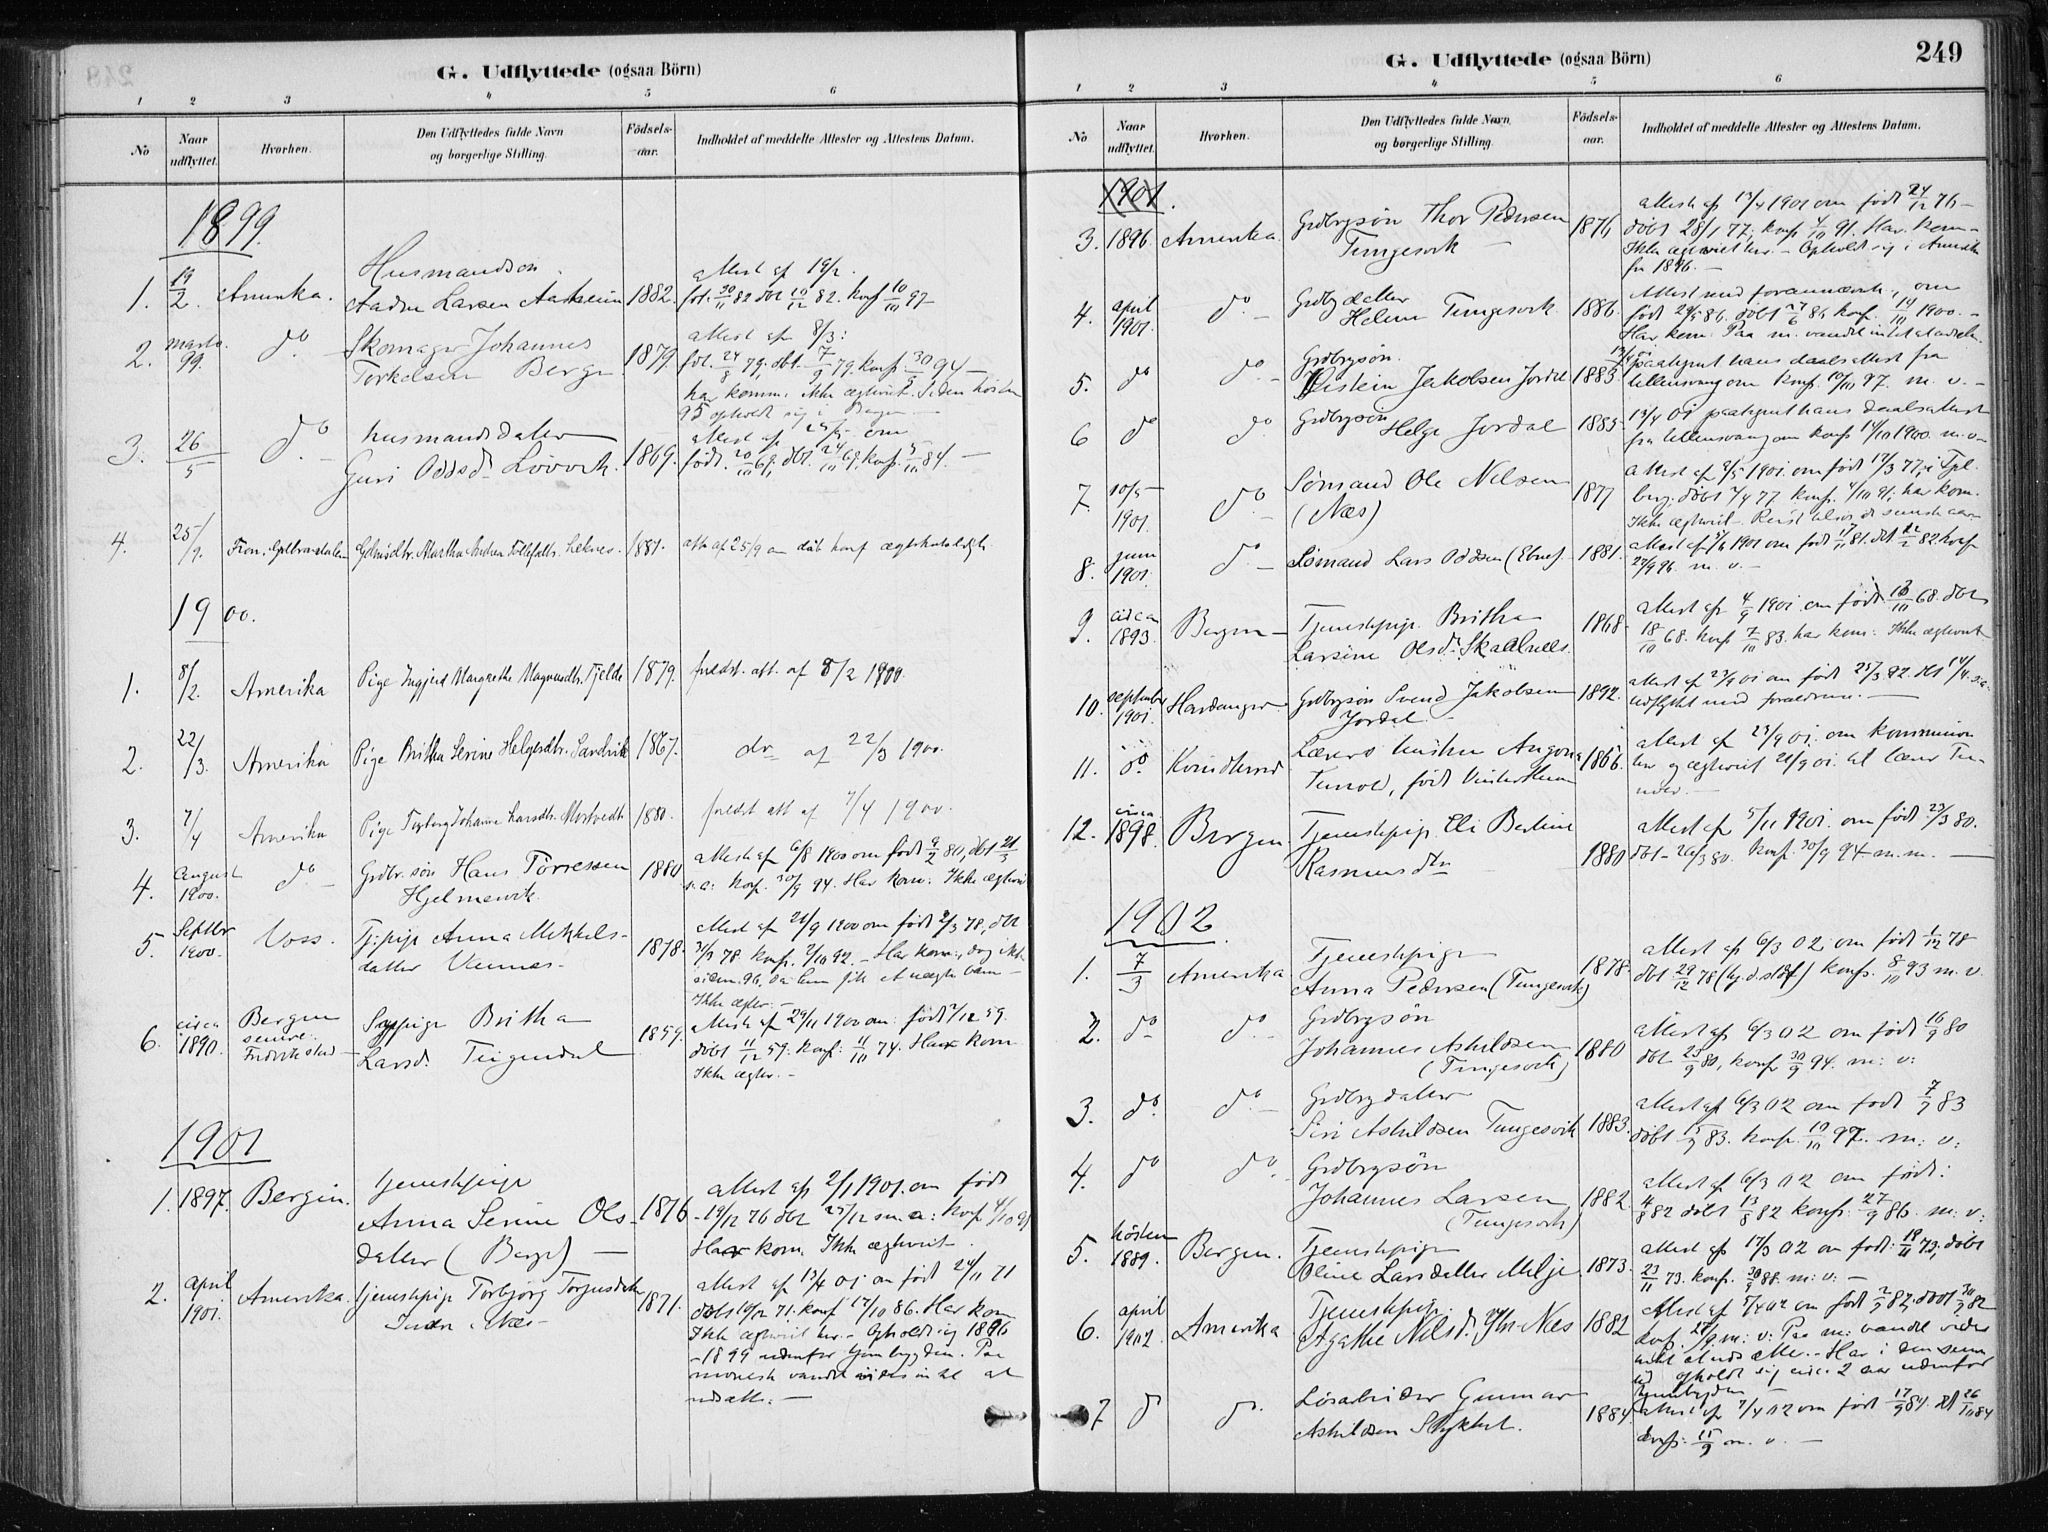 G. Udflyttede (ogsaa Börn)
1 2 3 4 5 6
No
Naar udflyttet.
Hvorhen.
Den Udflyttedes fulde Navn
og borgerlige Stilling.
Födsels-
aar.
Indholdet af meddelte Attester og Attestens Datum.
1899.
1. 19/2. Amerika.
Husmandsön
Larsen
1882.
Attest af 19/2.
födt 30/11 82 döbt 10/12 82. konf 10/10 97
2. marts 99. do
Skomager Johannes
Torkelsen Berge
1879.
attest af 8/3:
födt 24/8 79, döbt 7/9 79. konf. 30/9 94
har komm. ikke ægteviet. Siden hösten
95 opholdt sig i Bergen.
3. 26/5 do
husmandsdatter
Guri Oddsd. Lövvik.
1869.
attest af 25/5 om
födt 20/10 69, döbt 24/10 69, konf. 5/10 84.
4. 25/9.
1881.
att. af 25/9 om dåb konf
1900.
1. 8/2. Amerika
Pige Ingjerd Margrethe Magnusdtr. Tjelde
1879.
fuldst. att. af 8/2 1900.
2. 22/3. Amerika
Pige Britha Serine Helgesdtr. Sandvik
1867.
do af 22/3 1900.
3. 7/4 Amerika
Pige Torborg Johanne Larsdtr. Mostvedt
1880.
fuldst att af 7/4 1900.
4. august 1900. do
Grdbr.sön Hans Törressen
Hjelmevik.
1880
attest af 6/8 1900 om födt 9/2 80, döbt 21/3
s.a: konf. 30/9 94. Har kom: Ikke ægteviet
5. Septbr 1900. Voss.
Tj:pige Anna Mikkels-
datter Vannes.
1878.
attest af 21/9 1900 om födt 2/3 78, döbt
31/3 78 konf. 2/10 92. Har kom:, dog ikke
siden 96, da hun fik et uægte barn
Ikke ægtev:
6. circa 1890.
Bergen
senere
Fredrikstad
Sypige Britha
Larsd. Teigendal
1859.
Attest af 29/11 1900 om: födt 2/12 59.
döbt 11/12 59. konf: 11/10 74. Har kom
Ikke ægtev.
1901
1. 1897. Bergen.
tjenestepige
Anna Serine Ols-
datter (Berge)
1876
attest af 2/1 1901. om födt
19/12 76 döbt 25/12 s.a: konf 4/10 91
Har kom. Ikke ægteviet.
2. april 1901. Amerika.
tjenestepige Torbjörg Torgersdatter
Indre Næs
1871.
attest af 13/4 01 om födt 24/11 71
döbt 10/12 71. konf 17/10 86. Har kom
Ikke ægteviet her. Opholdt sig 1896
-1899 udenfor hjembygden. Paa
moralsk vandel vides intet at
udsætte.
G. Udflyttede (ogsaa Börn)
249
1 2 3 4 5 6
No
Naar
udflyttet.
Hvorhen.
Den Udflyttedes fulde Navn
og borgerlige Stilling.
Födsels-
aar.
Indholdet af meddelte Attester og Attestens Datum.
1901.
3. 1896. Amerika.
Grdbrgsön Thor Pedersen
Tungesvik
1876
attest af 13/4 1901 om födt 24/12 76
döbt 28/1 77, konf 4/10 91. Har kom
Ikke ægteviet her. Opholdt sig i Amerika
fra 1896.
4. april 1901. do
Grdbrgdatter
Helene Tungesvik
1886.
Attest med foranævnte, om
födt 29/5 86. döbt 27/6 86 konf. 14/10 1900.
Har kom: Paa m. vandel intet at udsætte.
5. do do
Grdbrgsön
Östein Jakobsen Jordal
1883
13/4 paategnet hans daabsattest fra
Ullensvang om konf. 10/10 97. m. v.
6 do do
Grdbrgsön
Helge Jordal
1885.
13/4 01 paategnet hans daabsattest
fra Ullensvang om konf 14/10 1900. m. v.
7. 10/5 1901. do
Sömand Ole Nilsen
(Næs)
1877
attest af 9/5 1901. om födt 17/3 77, i
döbt 2/4 77 konf. 4/10 91; har kom.
Ikke ægteviet.
8. juni 1901. do
Sömand Lars Oddsen (Ebne)
1881.
attest af 1901 om födt 11/11 81. döbt 12/2 82. konf
27/9 96. m. v.
9. circa 1893. Bergen
Tjenestepige Britha
Larsine Olsd. Skaalnes.
1868.
attest af 4/9 1901 om födt 10/10 68. döbt
18/10 68. konf 7/10 83. har kom: Ikke ægteviet
10. September 1901. Hardanger.
Grdbrgsön Svend Jakobsen
Jordal.
1892.
attest af 23/9 01 om födt 25/3 92. döbt 14/4 s.a.
udflyttet med forældrene.
11. do.
Lærers hustru
Tunold, födt
1866.
attest af 23/9 01: om kommunion
her og ægteviet 21/9 01. til lærer Tu-
nold.
12. circa 1898. Bergen
Tjenestepige Eli Bertine
Rasmusdtr
1880
attest af 5/11 1901. om födt 23/3 80.
döbt 26/3 80. konf. 30/9 94. m.m.
1902.
1. 7/3 Amerika
Tjenestepige
Anna Pedersen (Tungesvik)
1878.
attest af 6/3 02 om födt 1/12 78
döbt 29/12 78 (hj.d. stdf) konf. 8/10 93 m. v.
2. do do
Grdbrgsön
Johannes Askildsen
(Tungesvik)
1880
Attest af 6/3 02 om födt 16/9 80
döbt 25/9 80, konf 30/9 94. m: v:
3. do. do
Grdbrgdatter
Siri Askildsen Tungesvik
1883.
attest af 6/3 02 om födt 7/7 83
döbt 15/7 83. konf. 10/10 97. m: v:
4. do do.
Grdbrgsön
Johannes Larsen
(Tungesvik)
1882.
attest af 6/3 02 om födt:
4/8 82 döbt 13/8 82 konf: 27/9 86. m: v:
5. hösten 1889. Bergen.
Tjenestepige
Oline Larsdatter Milje.
1873.
attest af 17/3 02 om födt: 18/11 73, döbt
23/11 73. konf. 30/9 88. m: v:
6. april 1902. Amerika.
Tjenestepige.
Agathe Nilsd. Ytre Næs
1882
Attest af 7/4 02 om födt 2/7 82. döbt 30/7 82
konf. 27/9 m: v: Paa m: vandel vides
intet at udsætte. Har i den senere
tid opholdt sig circa 2 aar udenfor
hjembygden
7 do do.
Lösarbeider Gunnar
Askildsen Stykket.
1884
attest af 7/4 02 om födt 17/9 84. döbt 26/10 84
konf: 11/9 m. v.